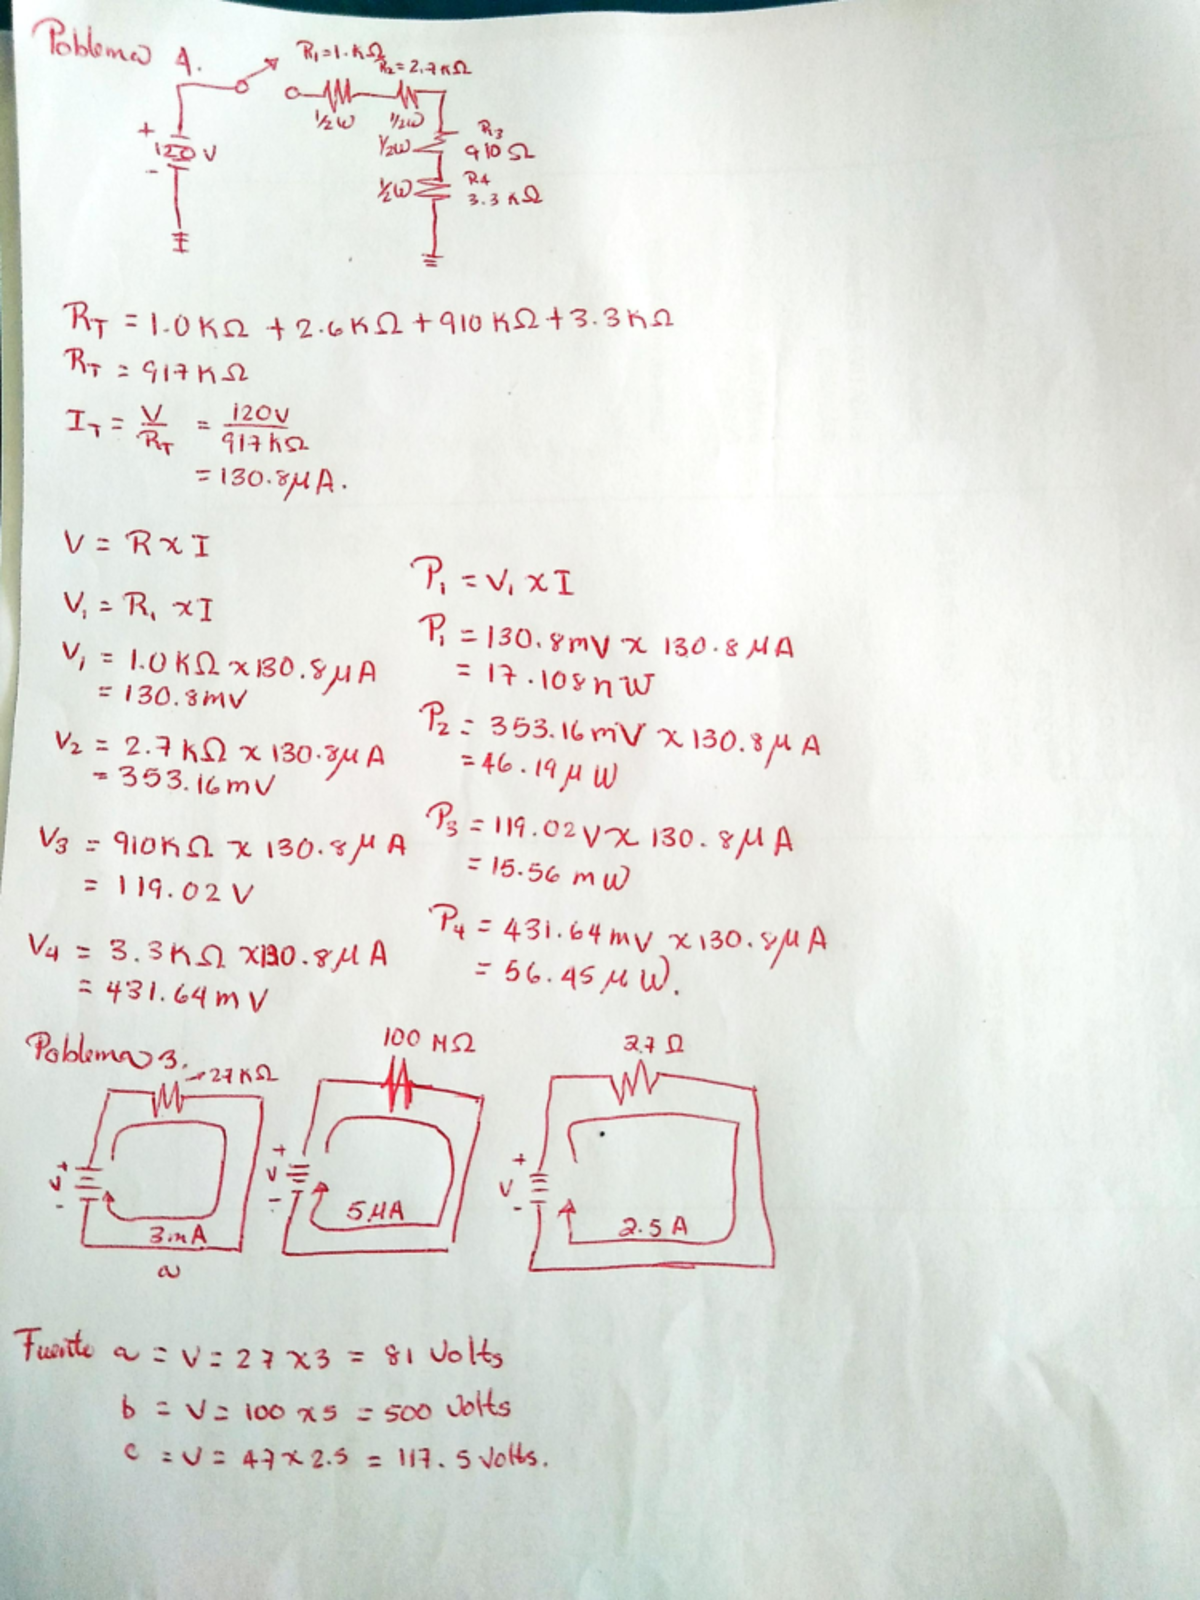 Poblema 4.
R1=1.KΩ
R2=2.7KΩ
1/2W 1/2W
+
120 V
-
1/2W
R3
910 Ω
1/2W
R4
3.3 KΩ
RT = 1.0KΩ + 2.6KΩ + 910KΩ + 3.3KΩ
RT = 917KΩ
IT = V/RT = 120V/917KΩ
= 130.8μA.
V = R x I
V1 = R1 x I
V1 = 1.0KΩ x 130.8μA
= 130.8mV
V2 = 2.7KΩ x 130.8μA
= 353.16mV
V3 = 910KΩ x 130.8μA
= 119.02V
V4 = 3.3KΩ x 130.8μA
= 431.64mV
P1 = V1 x I
P1 = 130.8mV x 130.8μA
= 17.108nW
P2 = 353.16mV x 130.8μA
= 46.19μW
P3 = 119.02V x 130.8μA
= 15.56mW
P4 = 431.64mV x 130.8μA
= 56.45μW.
Poblema 3.
27KΩ
+
V
-
3mA
a
100 MΩ
+
V
-
5μA
2.7 Ω
+
V
-
2.5 A
Fuente a = V = 27x3 = 81 Volts
b = V = 100 x5 = 500 Volts
c = V = 47x2.5 = 117.5 Volts.